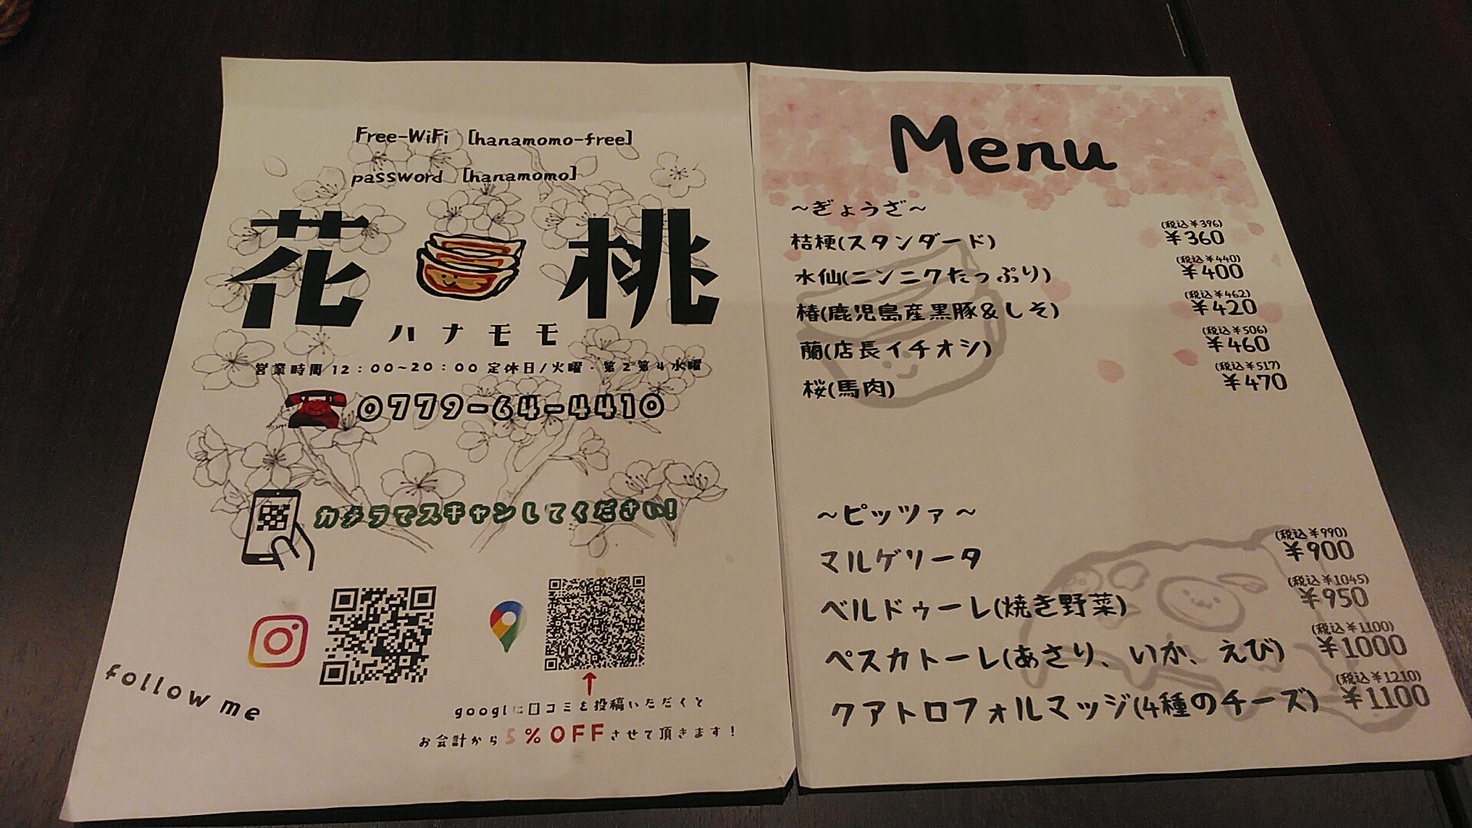 Free-WiFi [hanamomo-free]
password [hanamomo]
花桃
ハナモモ
営業時間 12:00~20:00 定休日/火曜・第2第4水曜
0779-64-4410
カメラでスキャンしてください!
follow me
googlに口コミを投稿いただくと
お会計から5%OFFさせて頂きます!
Menu
~ぎょうざ~
(税込¥396)
桔梗(スタンダード) ¥360
(税込¥440)
水仙(ニンニクたっぷり) ¥400
(税込¥462)
椿(鹿児島産黒豚&しそ) ¥420
(税込¥506)
蘭(店長イチオシ) ¥460
(税込¥517)
桜(馬肉) ¥470
~ピッツァ~
(税込¥990)
マルゲリータ ¥900
(税込¥1045)
ベルドゥーレ(焼き野菜) ¥950
(税込¥1100)
ペスカトーレ(あさり、いか、えび) ¥1000
(税込¥1210)
クアトロフォルマッジ(4種のチーズ) ¥1100